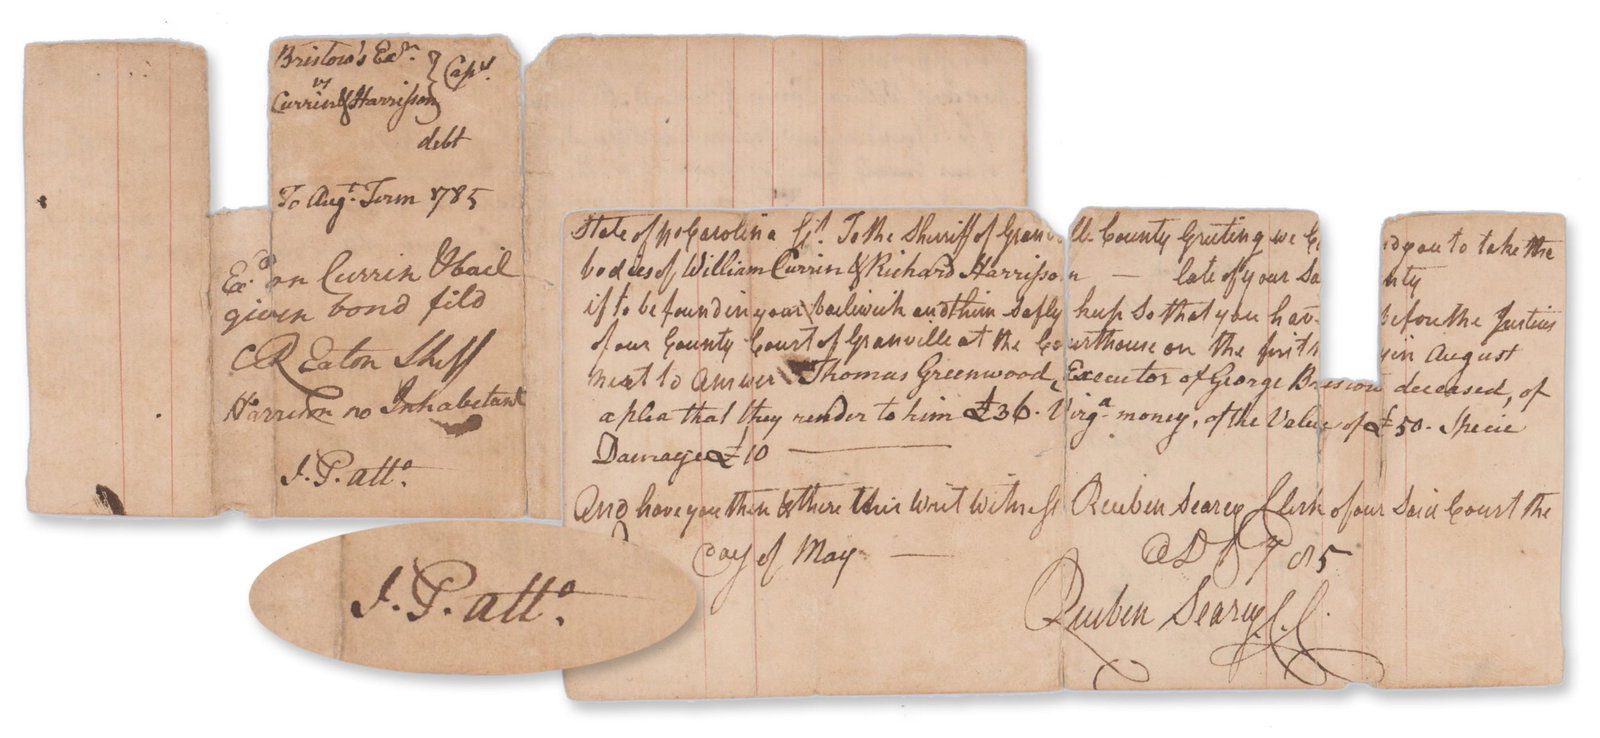 Bristow's Exr.
vs
Currin & Harrisson } Caps.
debt
To Augt. Term 1785
Exd on Currin & bail
given bond fild
C R Eaton Sheff
Harrison no Inhabetant
J. P. atto.
State of No Carolina Sst. To the Sherriff of Granv ll. County Greeting we Co nd you to take the
bodies of William Currin & Richard Harrisson — late of your Sa nty
if to be found in your bailiwick and them Safly keep So that you have before the Justices
of our County Court of Granville at the Courthouse on the first M y in August
next to answer Thomas Greenwood, Executor of George Bristow deceased, of
a plea that they render to him £36. Virga. money, of the Value of £50. Specie
Damage £10 —
And have you then & there this writ Witness Reuben Searcy Clerk of our Said Court the
day of May — AD 1785
Reuben Searcy C.C.
J. P. atto.